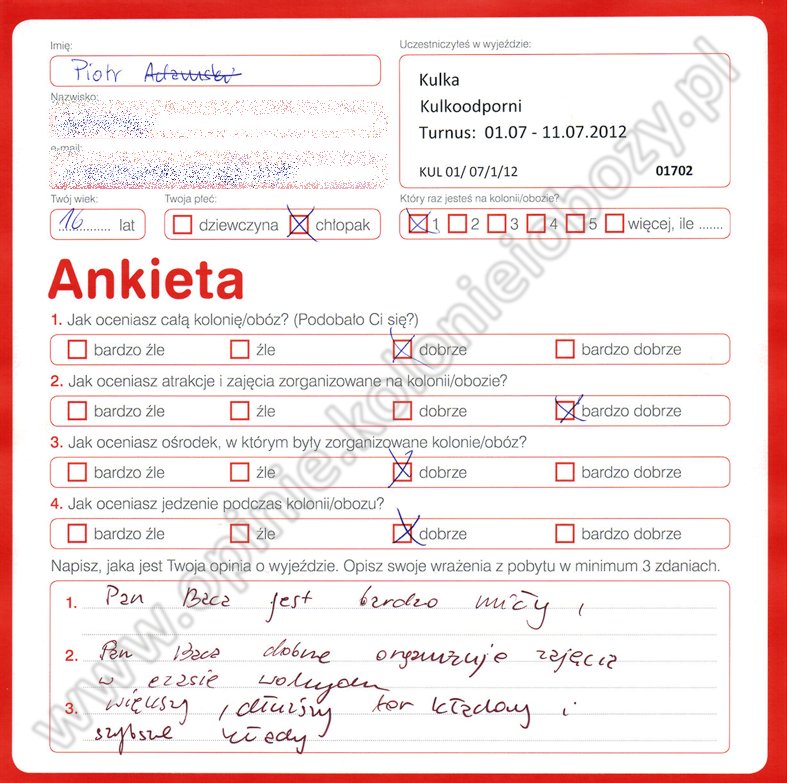 Imię:
Piotr
Nazwisko:
e-mail:
Uczestniczyłeś w wyjeździe:
Kulka
Kulkoodporni
Turnus: 01.07 - 11.07.2012
KUL 01/ 07/1/12 01702
Twój wiek:
16 lat
Twoja płeć:
dziewczyna chłopak
Który raz jesteś na kolonii/obozie?
1 2 3 4 5 więcej, ile .......
Ankieta
1. Jak oceniasz całą kolonię/obóz? (Podobało Ci się?)
bardzo źle źle dobrze bardzo dobrze
2. Jak oceniasz atrakcje i zajęcia zorganizowane na kolonii/obozie?
bardzo źle źle dobrze bardzo dobrze
3. Jak oceniasz ośrodek, w którym były zorganizowane kolonie/obóz?
bardzo źle źle dobrze bardzo dobrze
4. Jak oceniasz jedzenie podczas kolonii/obozu?
bardzo źle źle dobrze bardzo dobrze
Napisz, jaka jest Twoja opinia o wyjeździe. Opisz swoje wrażenia z pobytu w minimum 3 zdaniach.
1. Pan Baca jest bardzo miły,
2. Pan Baca dobrze organizuje zajęcia
w czasie
3. większy, dłuższy tor kładowy i
szybsze kłady
www.opinie.kolonieiobozy.pl